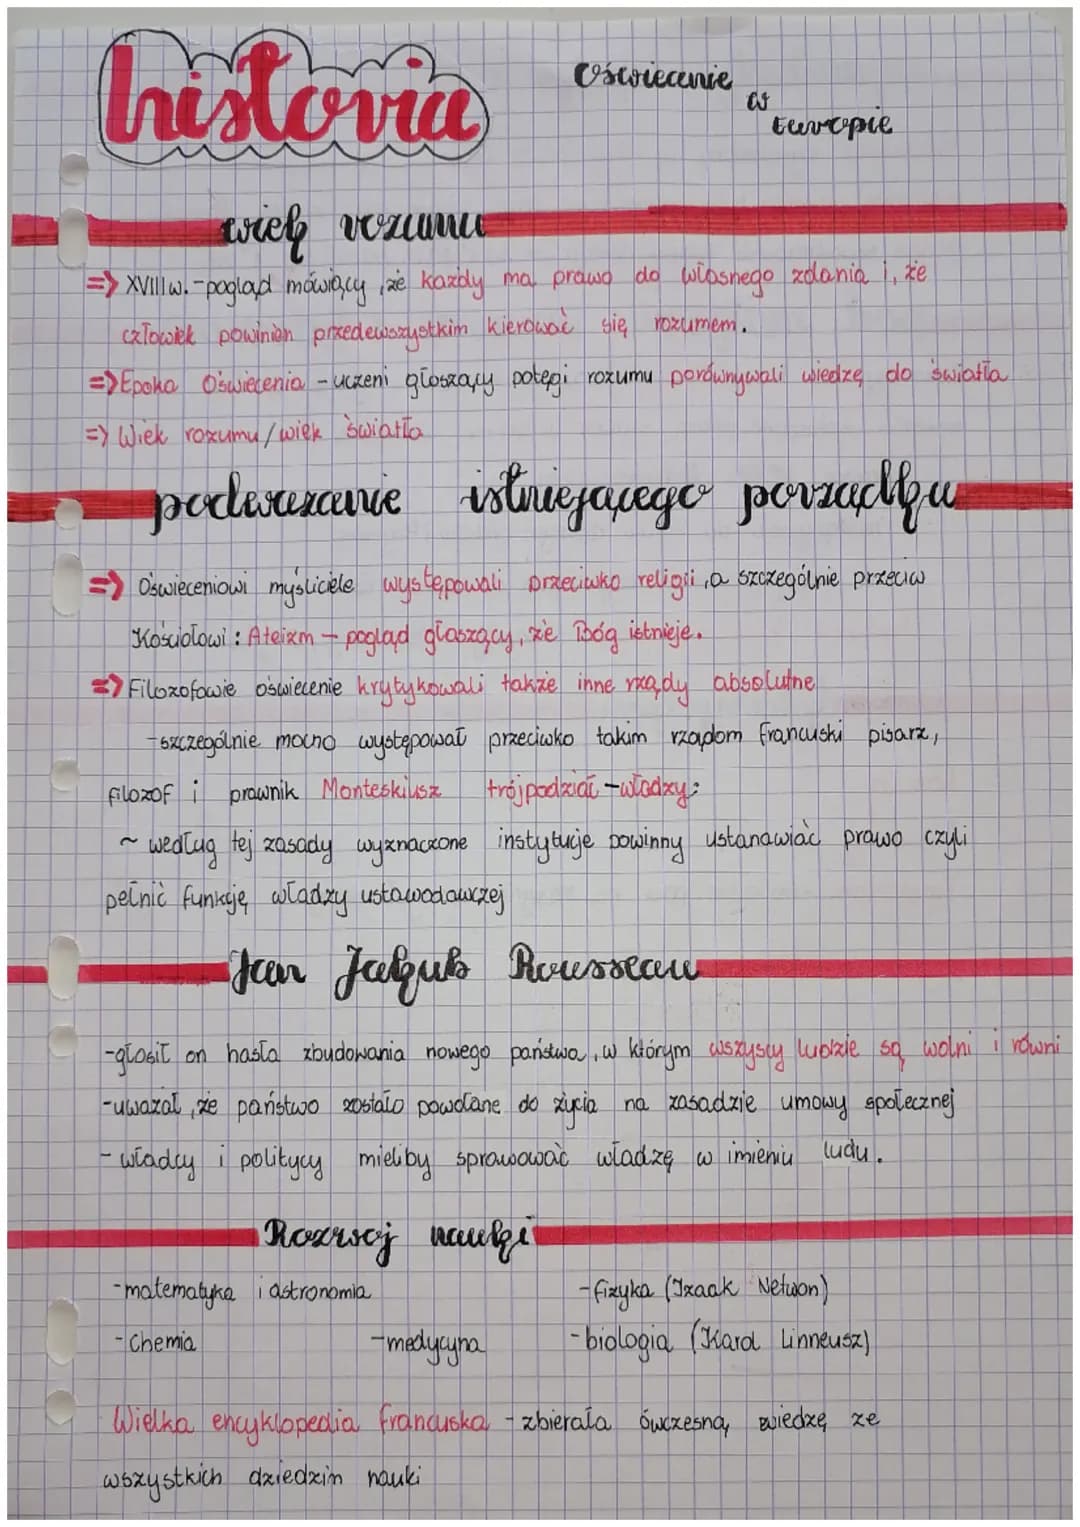 historia
Oświecenie
w
Europie
wiek rozumu
=> XVIII w. - pogląd mówiący, że każdy ma prawo do własnego zdania i, że
człowiek powinien przedewszystkim kierować się rozumem.
=> Epoka Oświecenia - uczeni głoszący potęgi rozumu porównywali wiedzę do światła
=> Wiek rozumu/wiek światła
podważanie istniejącego porządku
=> Oświeceniowi myśliciele występowali przeciwko religii, a szczególnie przeciw
Kościołowi: Ateizm - pogląd głoszący, że Bóg istnieje.
=> Filozofowie oświecenie krytykowali także inne rządy absolutne
-szczególnie mocno występował przeciwko takim rządom francuski pisarz,
filozof i prawnik Monteskiusz trójpodział - władzy:
~ według tej zasady wyznaczone instytucje powinny ustanawiać prawo czyli
pełnić funkcję władzy ustawodawczej
Jan Jakub Rousseau
-głosił on hasła zbudowania nowego państwa, w którym wszyscy ludzie są wolni i równi
-uważał, że państwo zostało powołane do życia na zasadzie umowy społecznej
-władcy i politycy mieliby sprawować władzę w imieniu ludu.
Rozwój nauki
-matematyka i astronomia -fizyka (Izaak Netwon)
-chemia -medycyna -biologia (Karol Linneusz)
Wielka encyklopedia francuska - zbierała ówczesną wiedzę ze
wszystkich dziedzin nauki